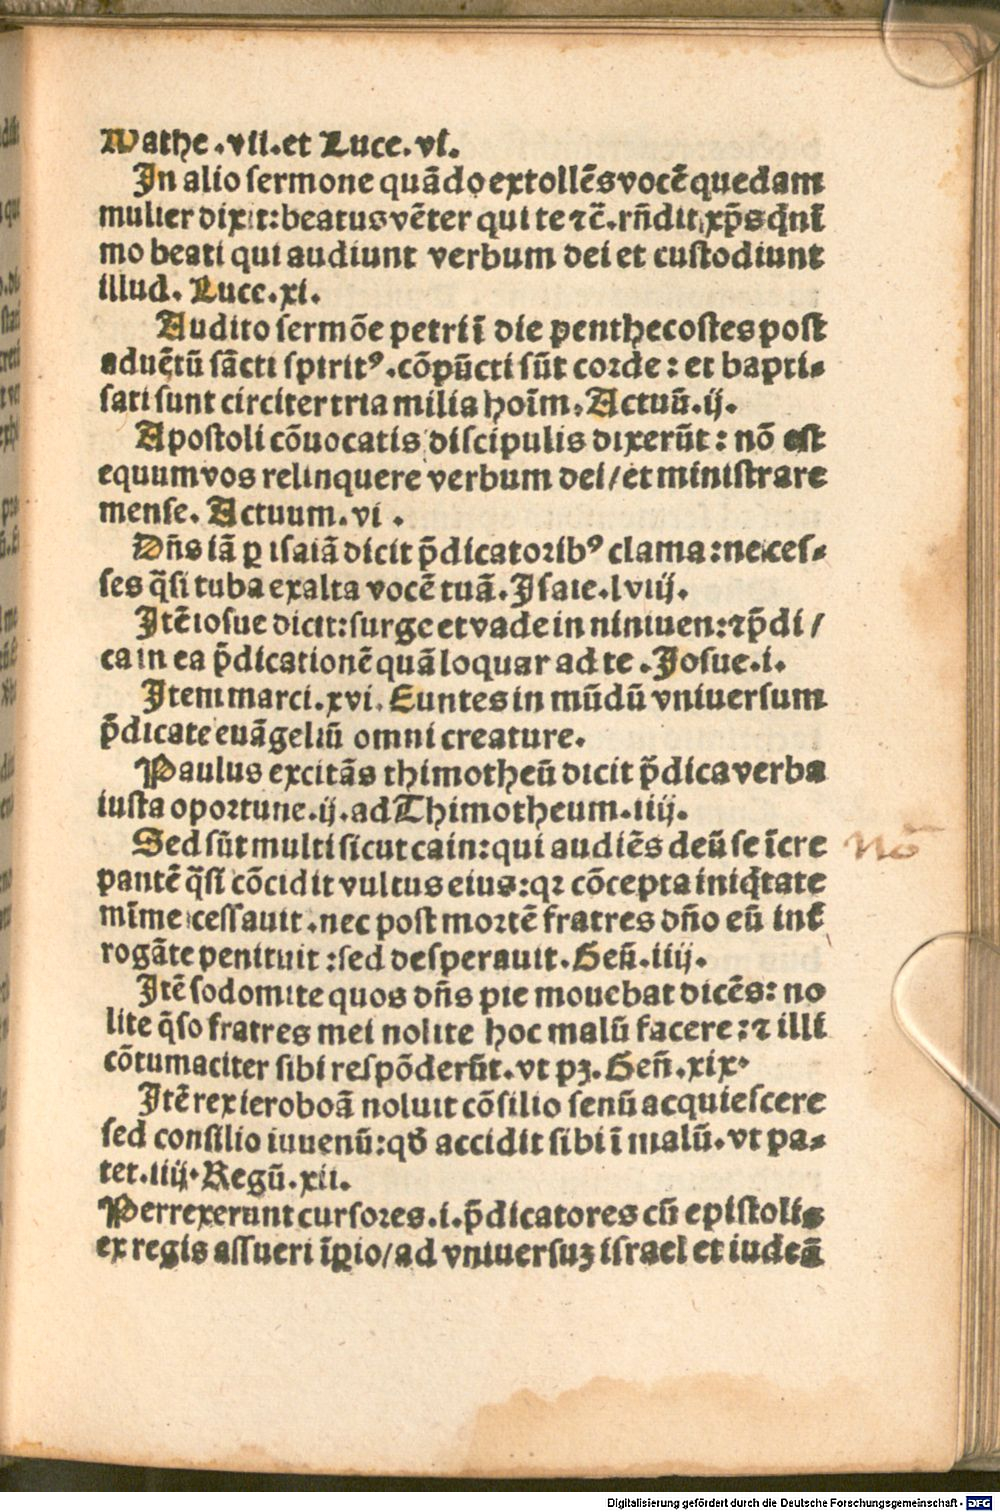 Mathe .vii.et Luce.vi.
In alio sermone quādo extollēs vocē quedam
mulier dixit:beatus vēter qui te ⁊c̄.rn̄dit xp̄s q̇nī
mo beati qui audiunt verbum dei et custodiunt
illud. Luce.xi.
Audito sermōe petri ī die penthecostes post
aduētū sācti spiritꝰ.cōpūcti sūt corde: et bapti-
sati sunt circiter tria milia hoīm.Actuū.ij.
Apostoli cōuocatis discipulis dixerūt: nō est
equum vos relinquere verbum dei/et ministrare
mense. Actuum.vi .
Dn̄s iā ꝑ isaiā dicit p̄dicatoribꝰ clama:ne ces-
ses q̄si tuba exalta vocē tuā.Isaie.lviij.
Itē iosue dicit:surge et vade in niniuen:⁊p̄di/
ca in ea p̄dicationē quā loquar ad te .Josue.i.
Item marci.xvi. Euntes in mūdū vniuersum
p̄dicate euāgeliū omni creature.
Paulus excitās thimotheū dicit p̄dica verba
iusta oportune.ij.ad Thimotheum.iiij.
Sed sūt multi sicut cain:qui audiēs deū se īcre
pantē q̄si cōcidit vultus eius:qꝛ cōcepta iniq̇tate
mīme cessauit .nec post mortē fratres dn̄o eū int̄
rogāte penituit :sed desperauit.Gen̄.iiij.
Itē sodomite quos dn̄s pie mouebat dicēs: no
lite q̄so fratres mei nolite hoc malū facere:⁊ illi
cōtumaciter sibi respōderūt.vt pꝫ.Gen̄.xix.
Itē rex ieroboā noluit cōsilio senū acquiescere
sed consilio iuuenū:qđ accidit sibi ī malū.vt pa-
tet.iiij.Regū.xii.
Perrexerunt cursores.i.p̄dicatores cū epistolis
ex regis assueri īꝑio/ad vniuersuꝫ israel et iudeā
Nō
Digitalisierung gefördert durch die Deutsche Forschungsgemeinschaft - DFG